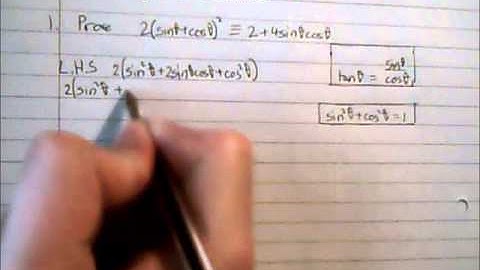 1. Prove 2(sinθ+cosθ)² ≡ 2+4sinθcosθ
L.H.S 2(sin²θ+2sinθcosθ+cos²θ)
2(sin²θ +
tanθ = sinθ/cosθ
sin²θ+cos²θ=1